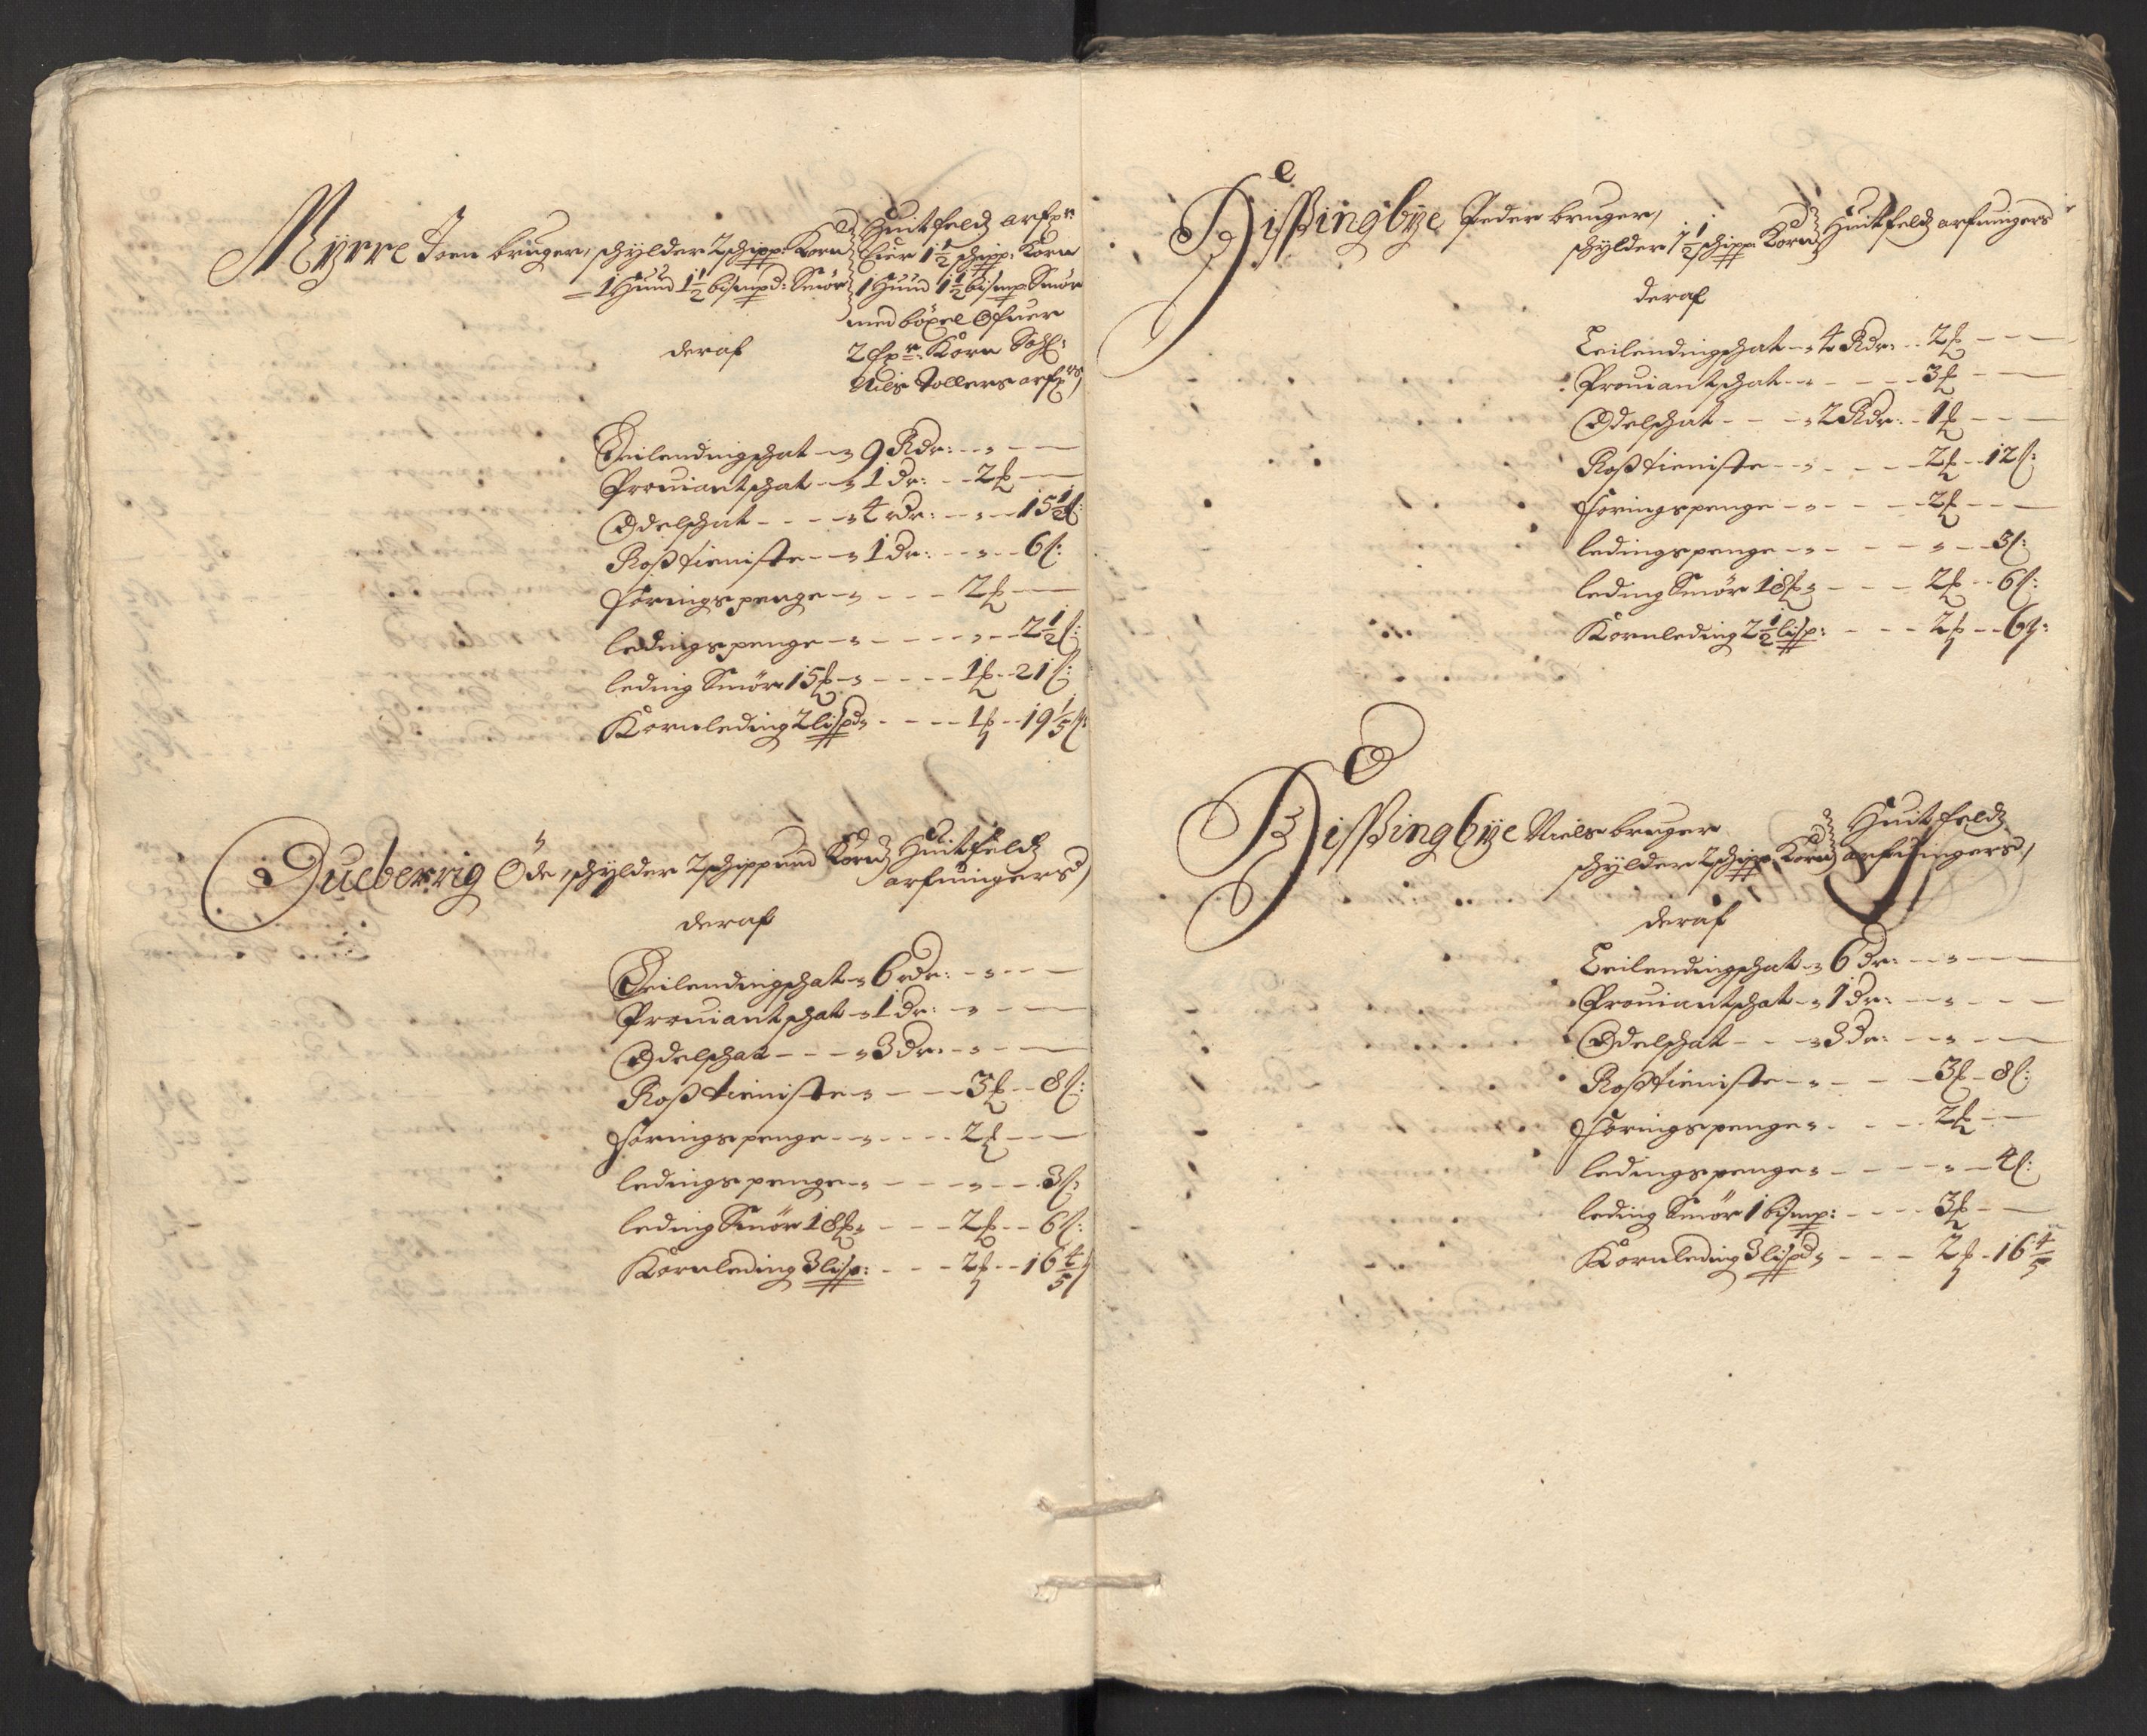 Myrre Joen bruger, schylder 2 schipp: Korn
1 Hund 1½ bismpd: Smør
Huitfeldz arfr:
Eier 1½ schipp: Korn
1 Hund 1½ bismp Smør
med böxel Ofuer
2 fr: Korn Sahl:
Nils Tollers arf:rs,
deraf
Leilendingschat - 9 Rdr: - -
Prouiantschat - 1 dr: - 2 ℔
Odelschat - - - 4 rdr: - - 15½ s:
Rosstieniste - 1 dr: - - 6 s:
foringspenge - - - 2 ℔
ledingspenge - - - - 2½ s:
leding Smør 15 ℔ - - - 1 ℔ - 21 s:
Kornleding 2 lispd - - - 1 ℔ - 19⅕ s:
Dueberrig Öde, schylder 2 schippund Korn Huitfeldz
arfuingers,
deraf
Leilendingschat - 6 rdr: - - -
Prouiantschat - 1 dr: - -
Odelschat - - - 3 dr: - -
Rosstieniste - - - 3 ℔ - 8 s:
foringspenge - - - 2 ℔ - -
ledingspenge - - - - 3 s:
leding Smør 18 ℔ - - - 2 ℔ - 6 s:
Kornleding 3 lisp: - - - 2 ℔ - 16⅘
Bissingbye Peder bruger,
schylder 1½ schipp: Korn Huitfeldz arfuingers
deraf
Leilendingschat - 4 Rdr: - 2 ℔ - - -
Prouiantschat - - - - 3 ℔ - -
Odelschat - - - 2 Rdr: - 1 ℔ - - -
Rosstieniste - - - - 2 ℔ - 12 s:
foringspenge - - - - 2 ℔ - - -
ledingspenge - - - - - 3 s:
leding Smør 18 ℔ - - - 2 ℔ - 6 s:
Kornleding 2½ lisp: - - - 2 ℔ - 6 s:
Bissingbye Niels bruger
schylder 2 schipp: Korn
Huitfeldz
arfuingers,
deraf
Leilendingschat - 6 dr: - - -
Prouiantschat - 1 dr: - - -
Odelschat - - - 3 dr: - - -
Rosstieniste - - - 3 ℔ - 8 s:
foringspenge - - - 2 ℔ - -
ledingspenge - - - - 4 s:
leding Smør 1 bismp: - - - 3 ℔ - -
Kornleding 3 lispd - - - 2 ℔ - 16⅘